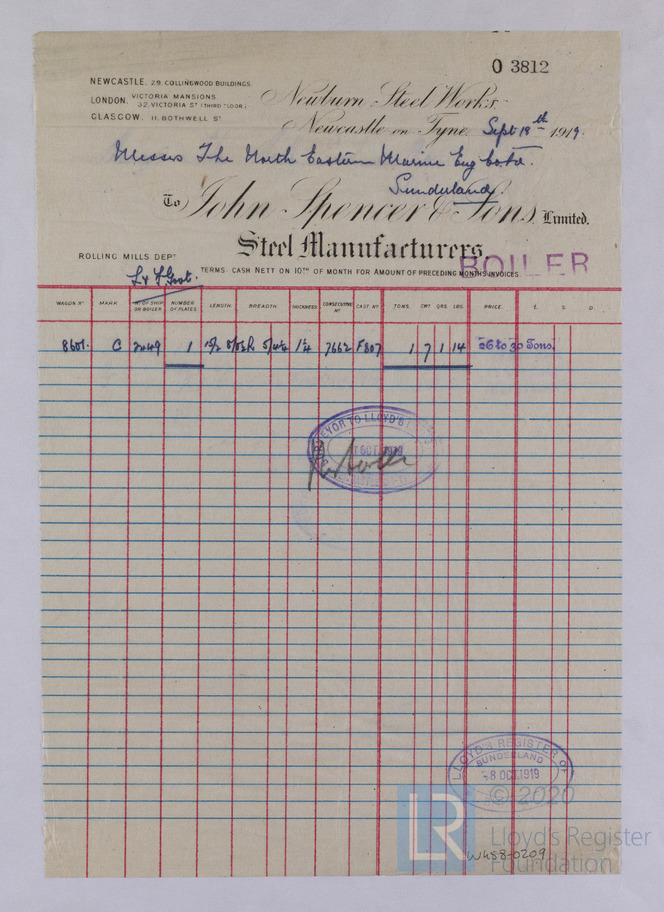 O 3812
NEWCASTLE. 29. COLLINGWOOD BUILDINGS.
LONDON. VICTORIA MANSIONS
32, VICTORIA ST (THIRD FLOOR)
GLASGOW. 11. BOTHWELL ST
Newburn Steel Works,
Newcastle on Tyne, Sept 18th 1919.
Messrs The North Eastern Marine Eng Co Ltd.
Sunderland
To John Spencer & Sons, Limited.
Steel Manufacturers.
ROLLING MILLS DEPT
BOILER
TERMS: CASH NETT ON 10TH OF MONTH FOR AMOUNT OF PRECEDING MONTHS INVOICES.
WAGON No MARK No OF SHIP OR BOILER NUMBER OF PLATES LENGTH. BREADTH. THICKNESS CONSECUTIVE No CAST No TONS. CWT. QRS. LBS. PRICE. £. S. D.
8601. C 2449 1 1 1/4 7662 F807 1 7 1 14 26 to 30 Tons.
SURVEYOR TO LLOYD'S
OCT 1919
LLOYD'S REGISTER OF
SUNDERLAND
8 OCT 1919
© 2020
LR
Lloyd's Register
Foundation
W458-0209